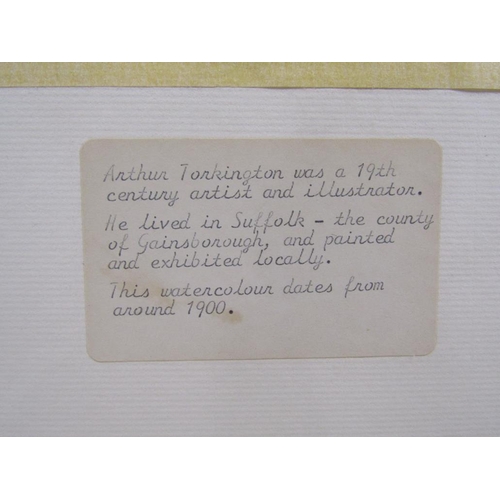 Arthur Torkington was a 19th
century artist and illustrator.
He lived in Suffolk - the county
of Gainsborough, and painted
and exhibited locally.
This watercolour dates from
around 1900.